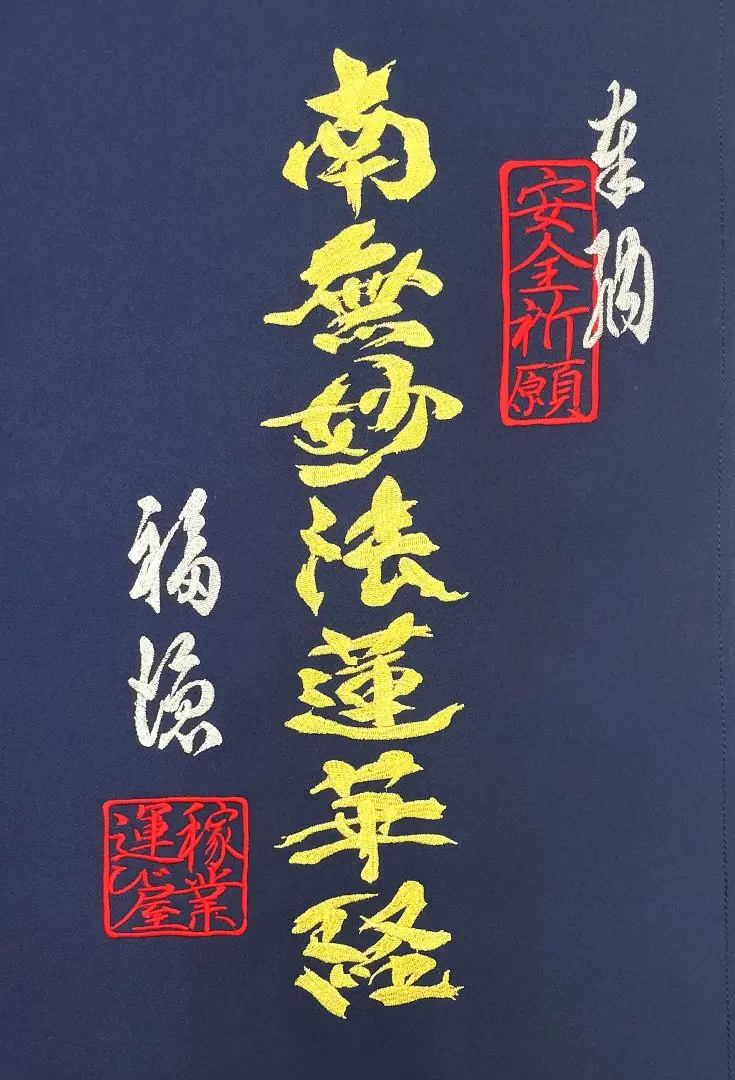 奉納
安全祈願
南無妙法蓮華経
福徳
稼業
運び屋